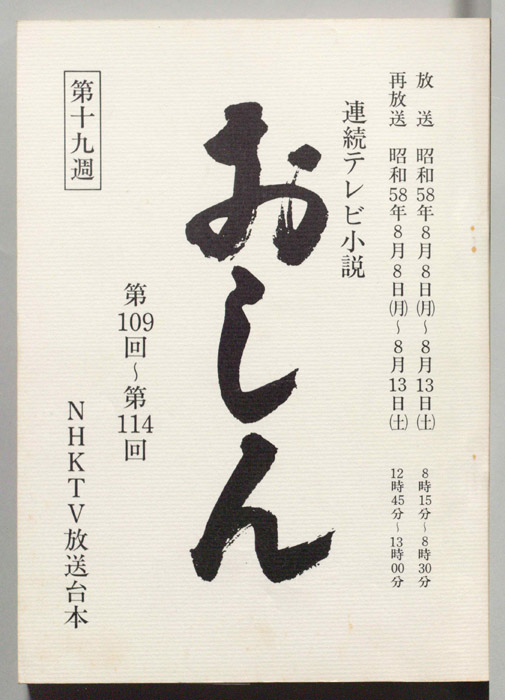 放送 昭和58年8月8日(月)～8月13日(土) 8時15分～8時30分
再放送 昭和58年8月8日(月)～8月13日(土) 12時45分～13時00分
連続テレビ小説
おしん
第109回～第114回
第十九週
NHKTV放送台本